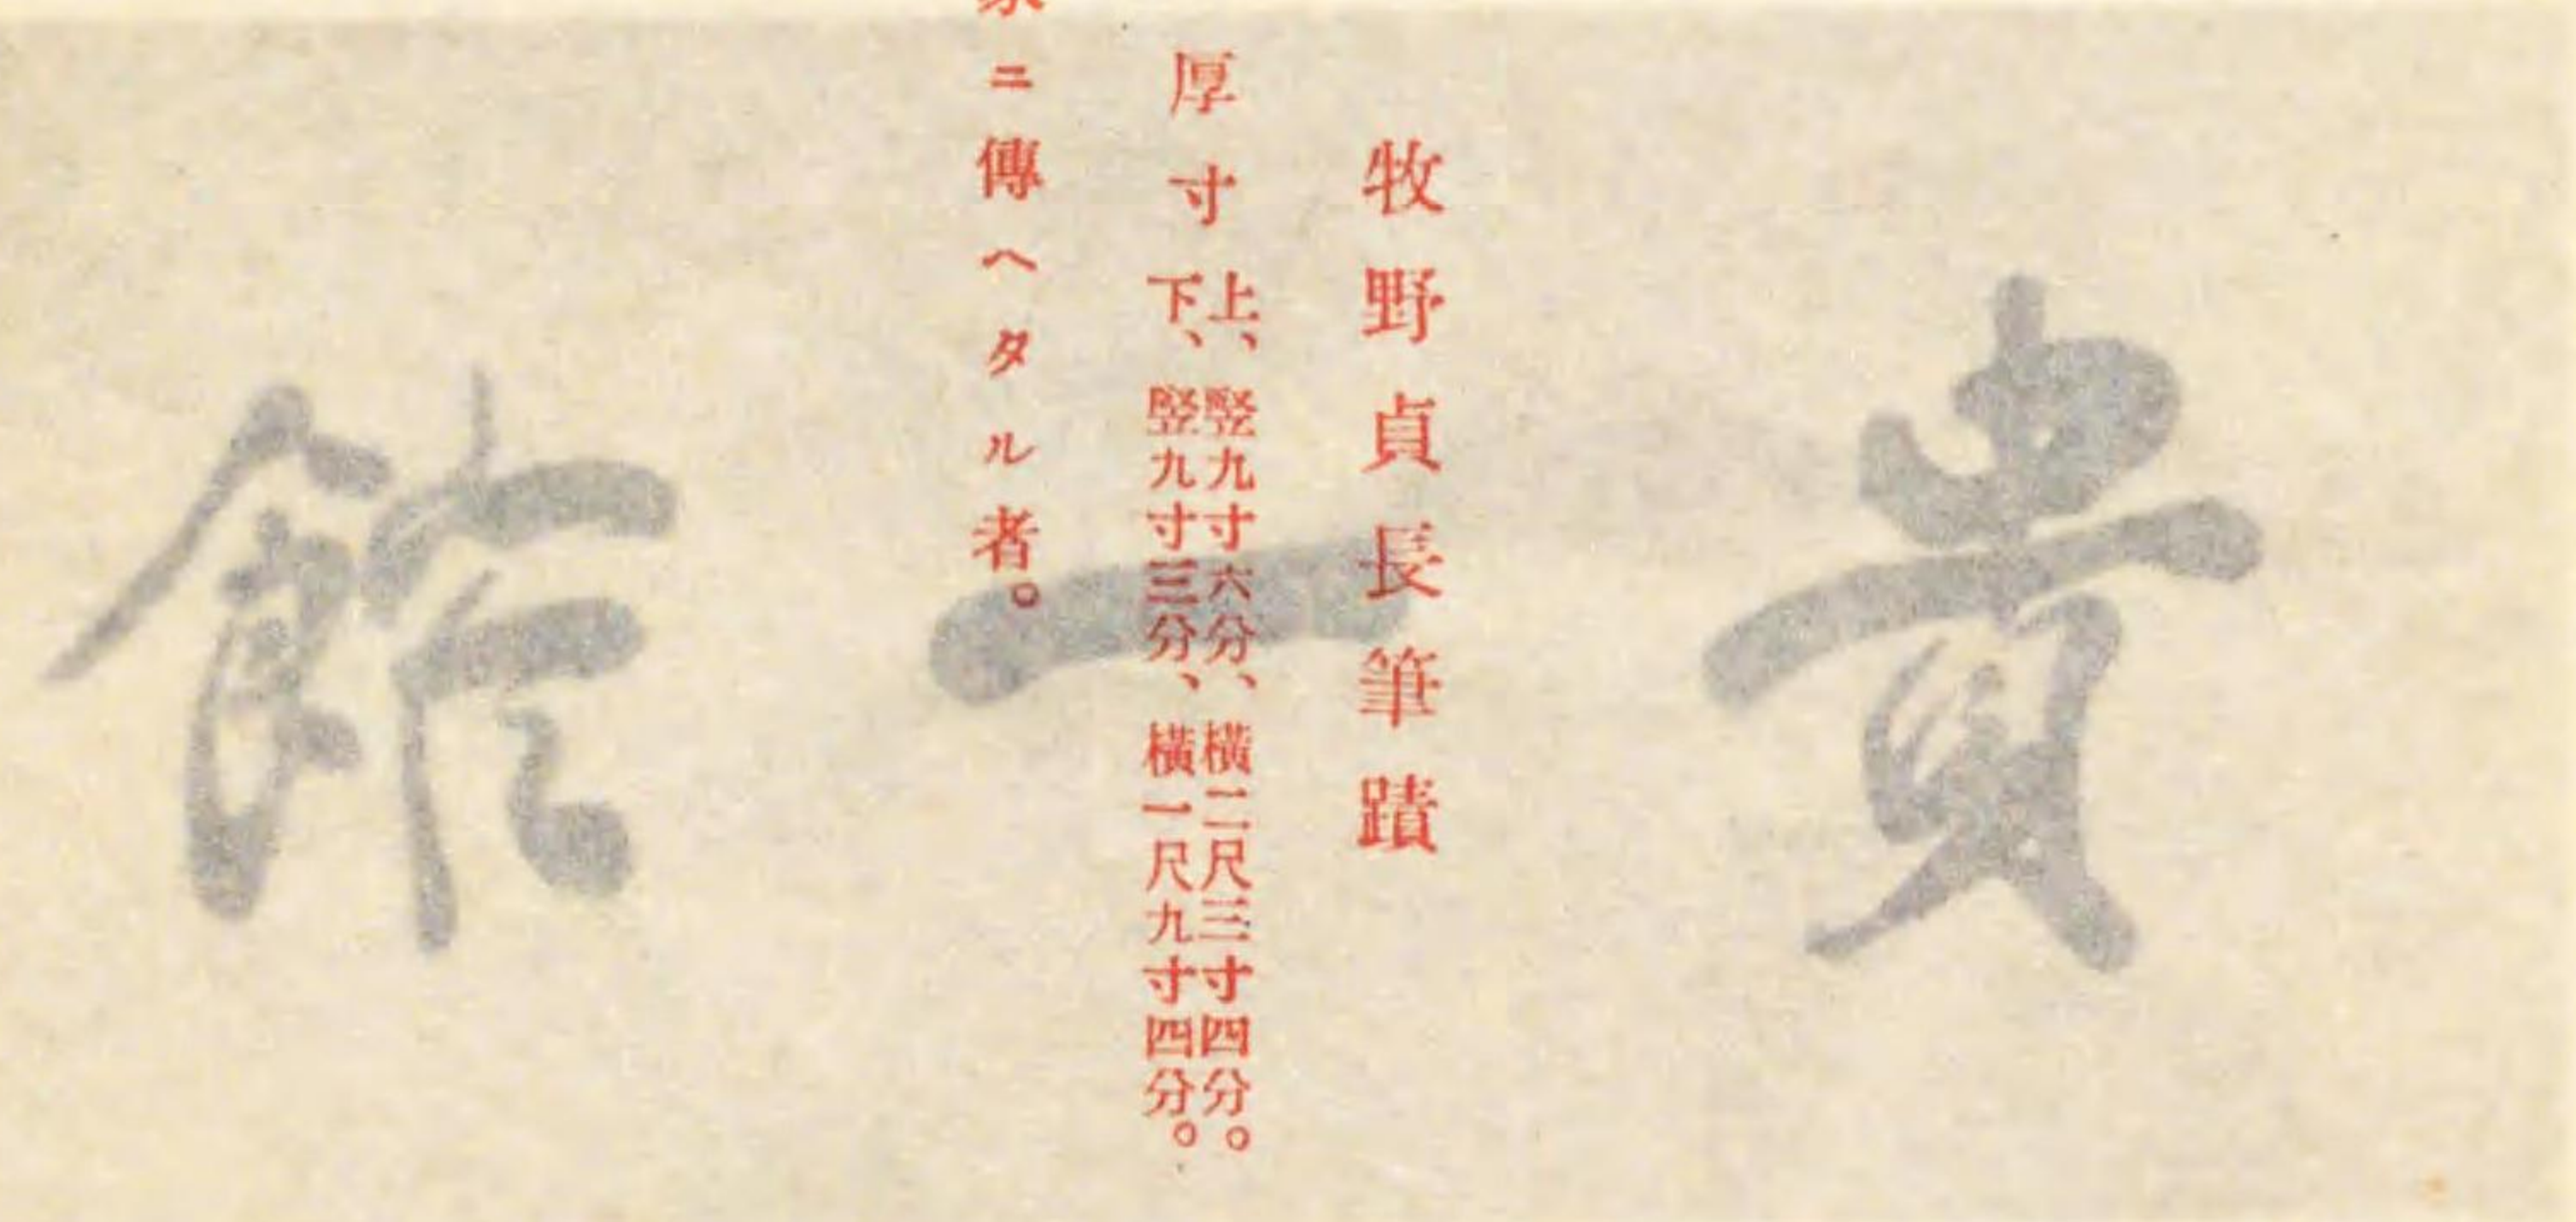 牧野貞長筆蹟
厚寸
上、竪九寸六分、橫二尺三寸四分。
下、竪九寸三分、橫一尺九寸四分。
ニ傳ヘタル者。
貴一館